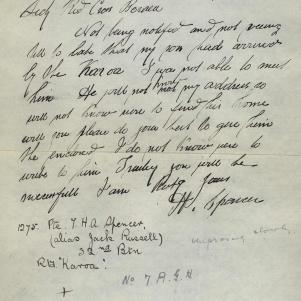 Secty Red Cross Bereau
Not being notified and not receiving
to late that my son had arrived
by the Karoa I was not able to meet
him He will not know my address so
will not know were to send his home
will you please do your best to give him
the enclosed I do not know were to
write to him Trusting you will be
successfull I am Resp yours
H. Spencer
1275. Pte T. H. A Spencer
(alias Jack Russell)
32nd Btn
"Karoa."
improving slowly
No 7 A. G. H